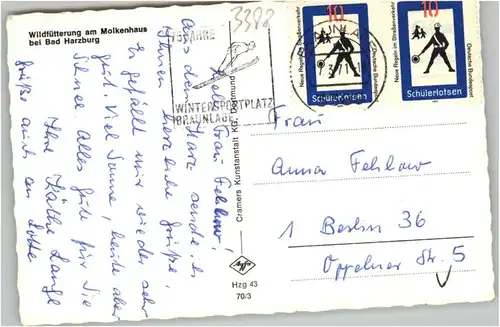 Wildfütterung am Molkenhaus
bei Bad Harzburg
3388
75 JAHRE
WINTERSPORTPLATZ
BRAUNLAGE
10
Neue Regeln im Straßenverkehr
Deutsche Bundespost
Schülerlotsen
10
Neue Regeln im Straßenverkehr
Deutsche Bundespost
Schülerlotsen
Liebe Frau Fehlow!
Aus dem Harz sende ich
Ihnen herzliche Grüße.
Es gefällt mir wieder sehr
gut. Viel Sonne, heute aber
Schnee. Alles Gute für Sie
Ihre Käthe Lange
Grüße auch an Lotte
Cramers Kunstanstalt KG, Dortmund
Agfa
Hzg 43
70/3
Frau
Anna Fehlow
1 Berlin 36
Oppelner Str. 5